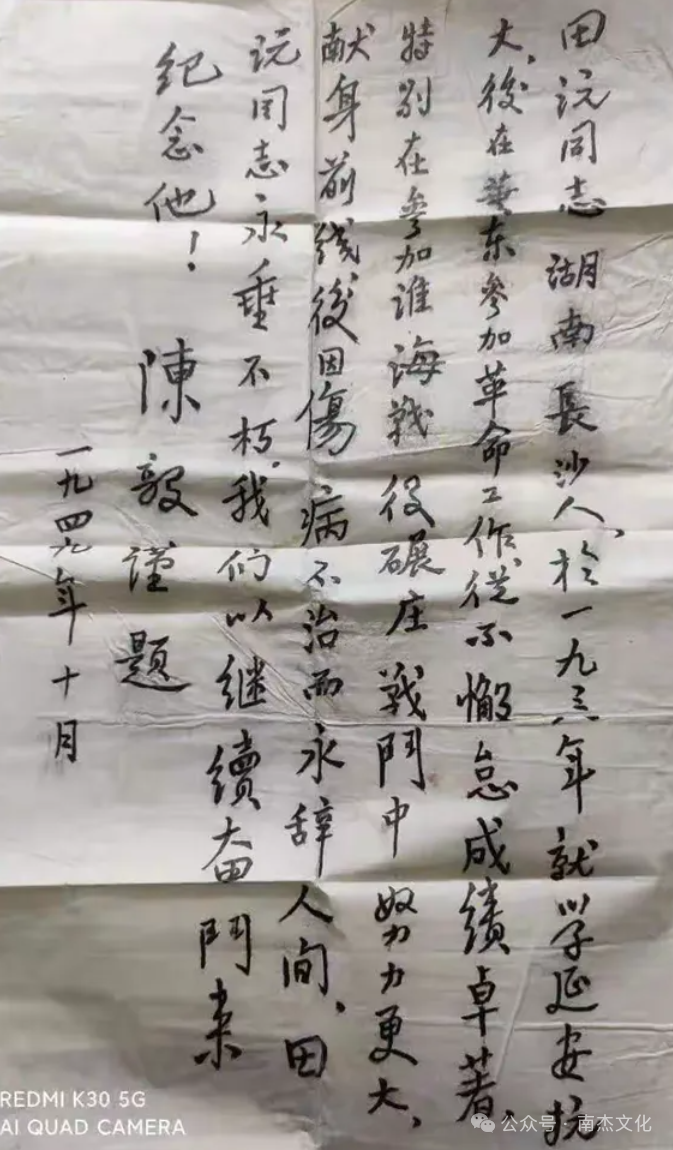 田沅同志湖南長沙人，於一九三八年就學延安抗
大，後在華东參加革命工作從不懈怠成績卓著，
特别在參加淮海戰役碾庄戰鬥中努力更大，
献身前线後因傷病不治而永辞人间，田
沅同志永垂不朽，我们以继續奋鬥来
纪念他！
陳毅謹題
一九四九年十月
REDMI K30 5G
AI QUAD CAMERA
公众号·南杰文化